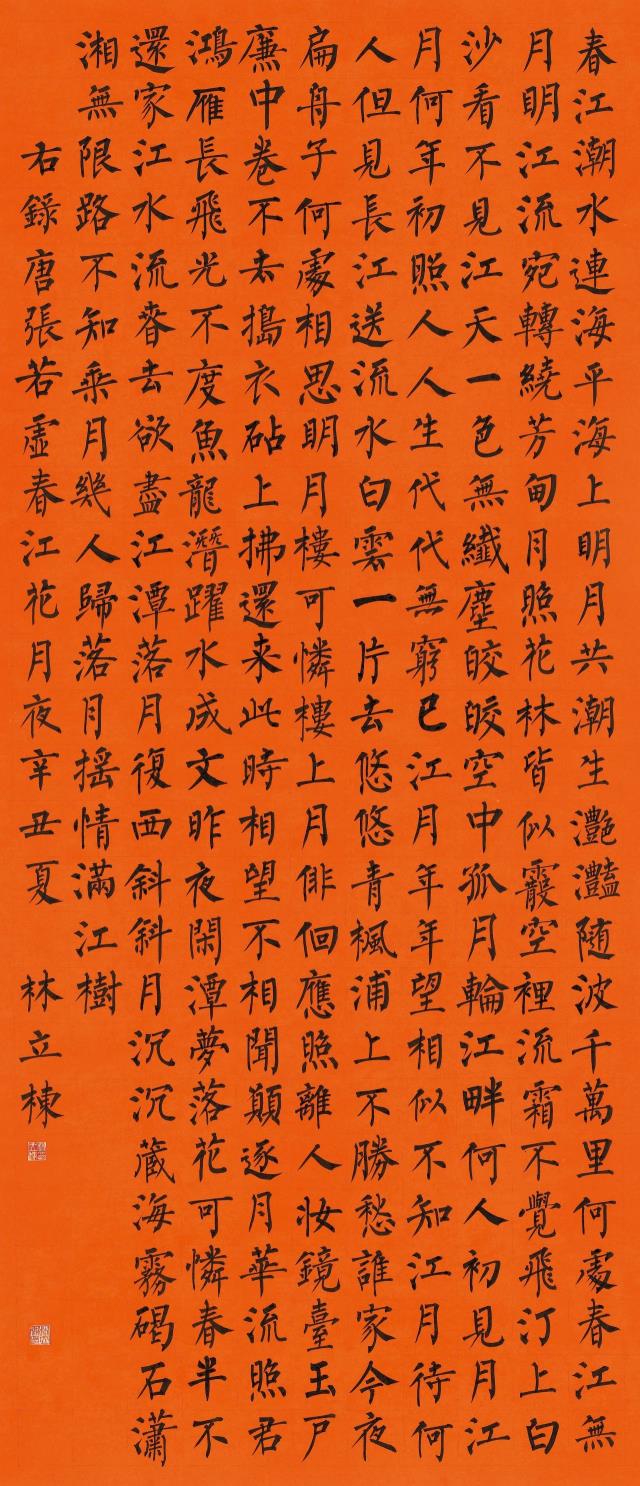 春江潮水連海平海上明月共潮生灧灩随波千萬里何處春江無
月明江流宛轉繞芳甸月照花林皆似霰空裡流霜不覺飛汀上白
沙看不見江天一色無纖塵皎皎空中孤月輪江畔何人初見月江
月何年初照人人生代代無窮已江月年年望相似不知江月待何
人但見長江送流水白雲一片去悠悠青楓浦上不勝愁誰家今夜
扁舟子何處相思明月樓可憐樓上月俳佪應照離人妝鏡臺玉戶
簾中卷不去搗衣砧上拂還来此時相望不相聞顛逐月華流照君
鴻雁長飛光不度魚龍潛躍水成文昨夜閑潭夢落花可憐春半不
還家江水流春去欲盡江潭落月復西斜斜月沉沉藏海霧碣石瀟
湘無限路不知乘月幾人歸落月搖情滿江樹
右錄唐張若虛春江花月夜辛丑夏 林立棟